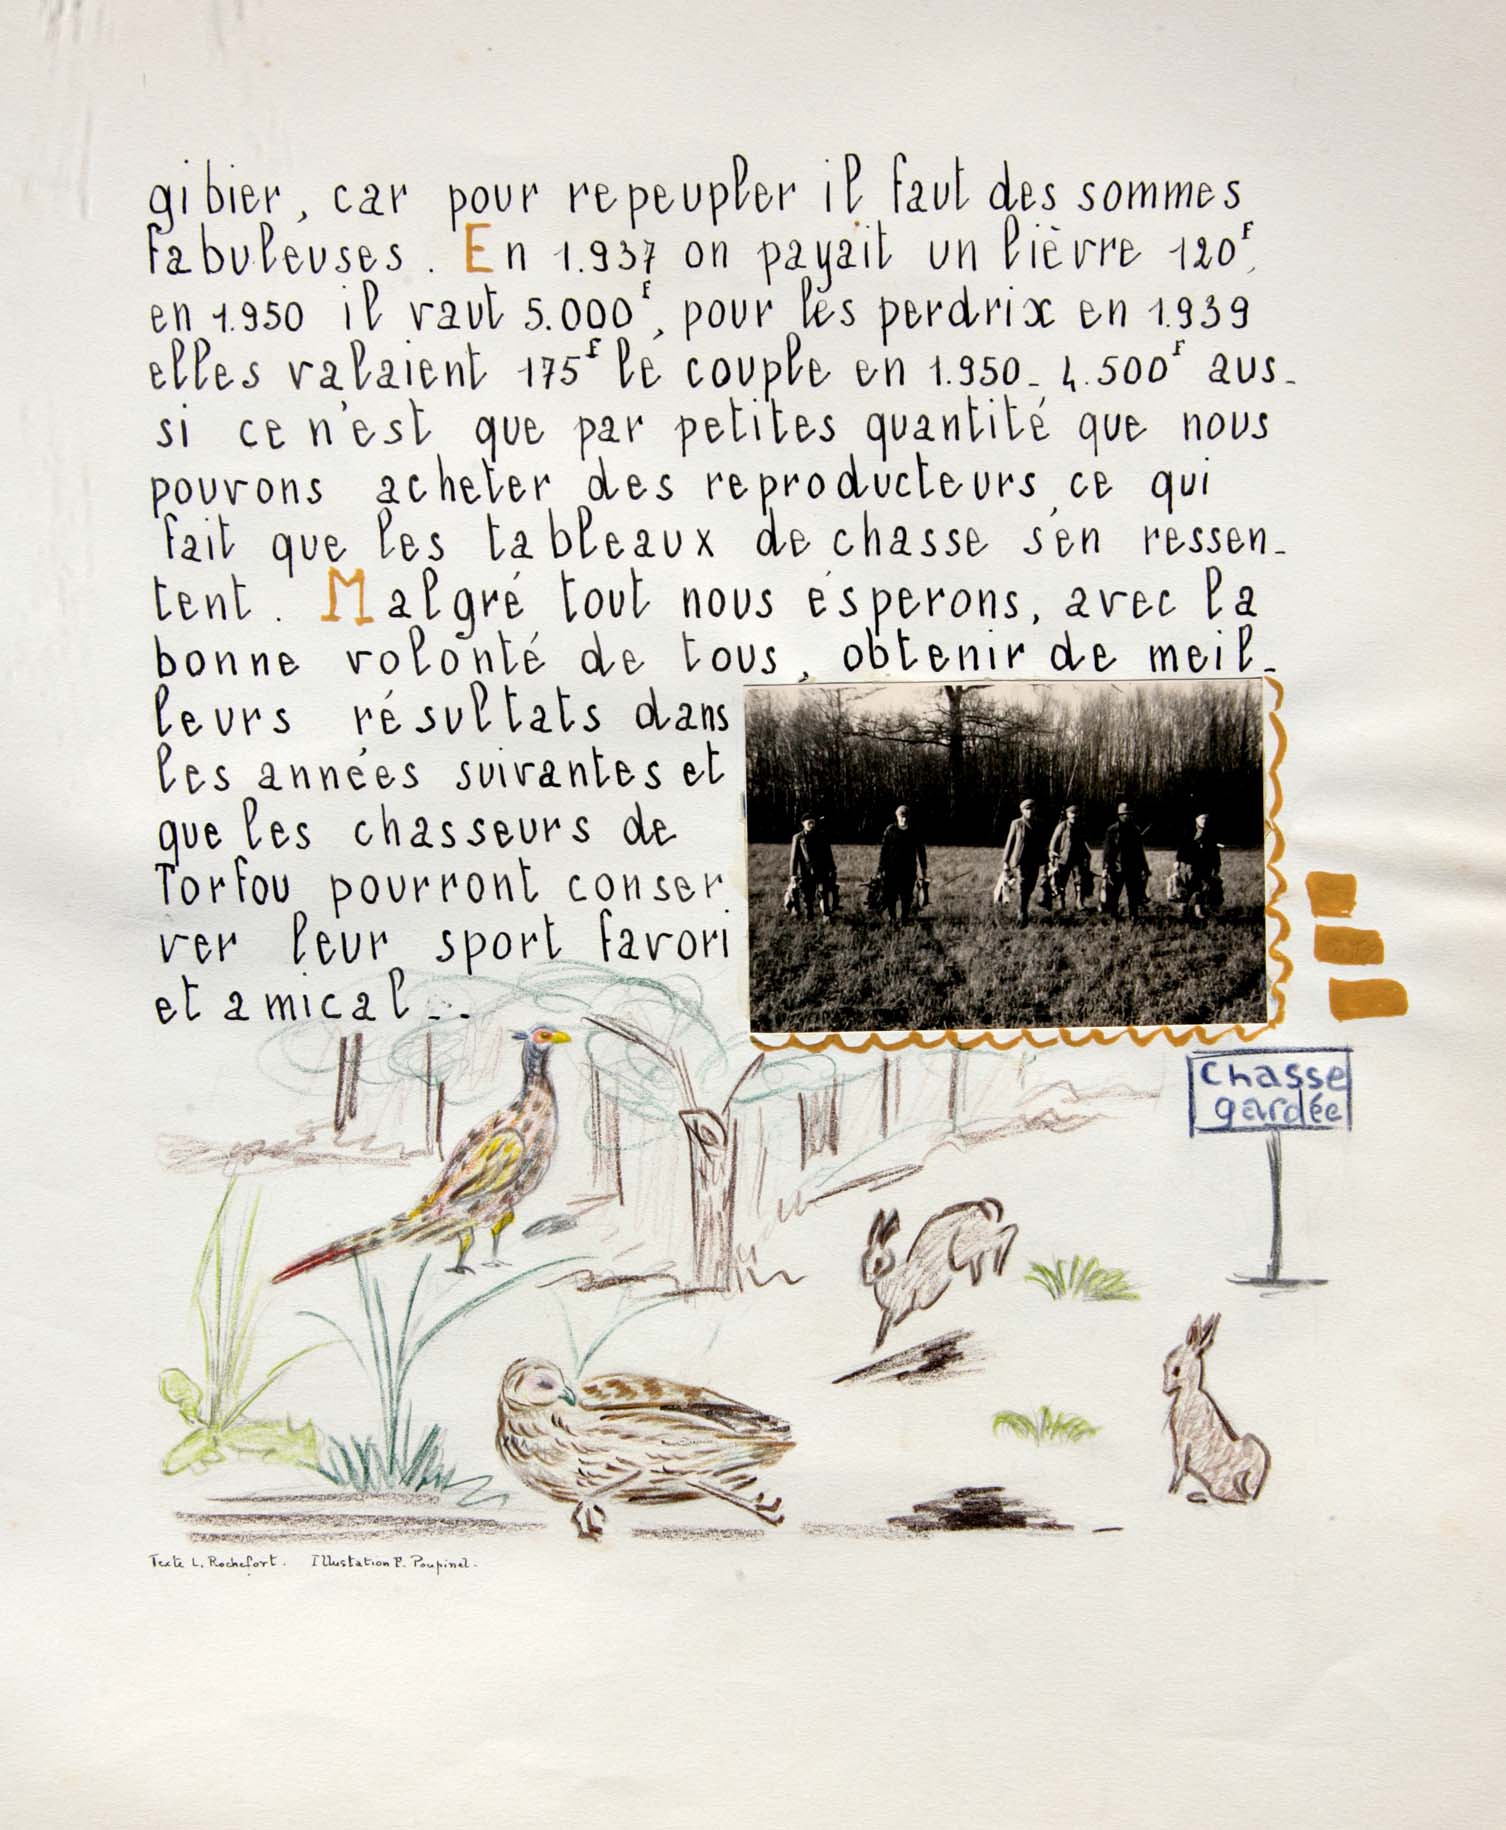 gibier, car pour repeupler il faut des sommes
fabuleuses. En 1.937 on payait un lièvre 120F,
en 1.950 il vaut 5.000F, pour les perdrix en 1.939
elles valaient 175F le couple en 1.950_ 4.500F aus_
si ce n'est que par petites quantité que nous
pouvons acheter des reproducteurs, ce qui
fait que les tableaux de chasse s'en ressen_
tent. Malgré tout nous ésperons, avec la
bonne volonté de tous, obtenir de meil_
leurs résultats dans
les années suivantes et
que les chasseurs de
Torfou pourront conser
ver leur sport favori
et amical...
Chasse
gardée
Texte L. Rochefort. Illustation F. Poupinel.